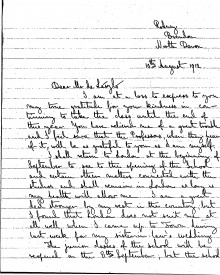 Braunton
North Devon
10th August 1912
Dear Mr de László
I am at a loss to express to you
my true gratitude for your kindness in con-
tinuing to take the class until the end of
this year. You have relieved me of a great trouble
and I feel sure that the Professors, when they hear
of it, will be as grateful to you as I am myself.
I shall return to London at the beginning of
September to see to the opening of the school
and certain other matters connected with the
studios and shall remain in London as long as
my health will allow me. I am
stronger by my rest in the country, but
I found that London does not suit me at
all well when I came up to town during
last week for my sister in law's wedding.
The junior classes of the school will be
reopened on the 8th September, but the